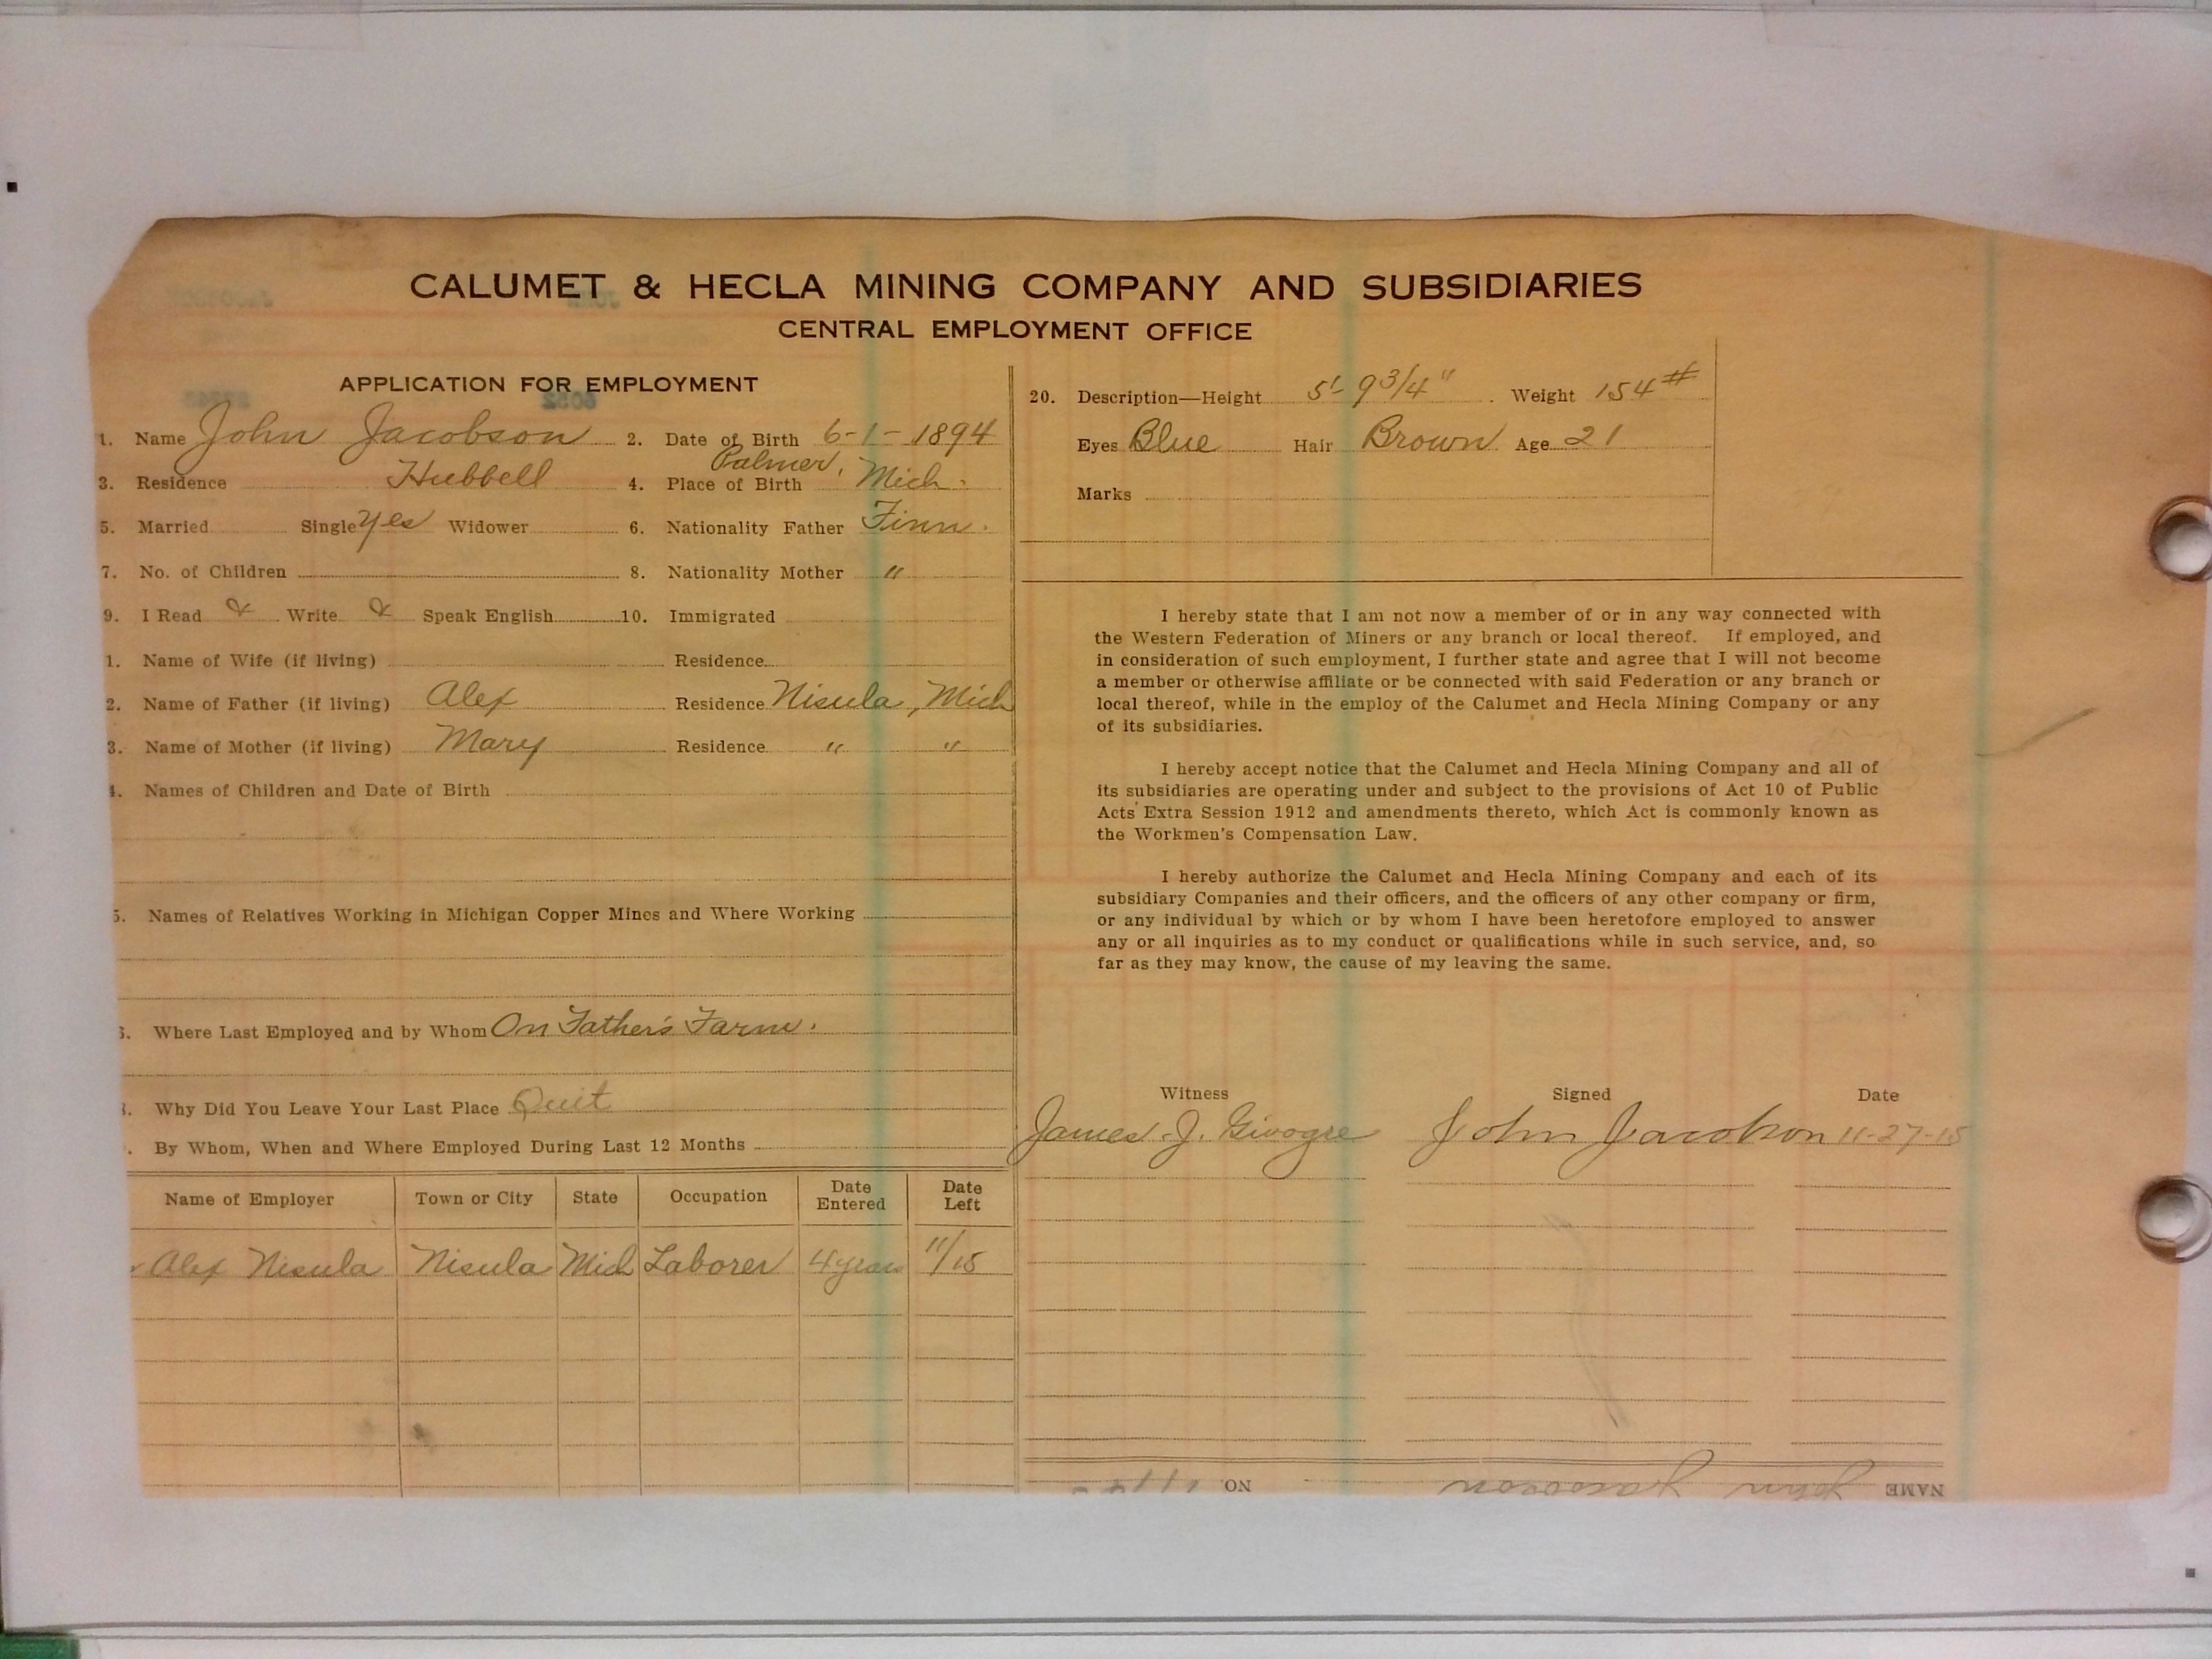 CALUMET & HECLA MINING COMPANY AND SUBSIDIARIES
CENTRAL EMPLOYMENT OFFICE
APPLICATION FOR EMPLOYMENT
1. Name John Jacobson 2. Date of Birth 6-1-1894
3. Residence Hubbell 4. Place of Birth Palmer, Mich.
5. Married Single Yes Widower 6. Nationality Father Finn.
7. No. of Children 8. Nationality Mother "
9. I Read & Write & Speak English 10. Immigrated
1. Name of Wife (if living) Residence
2. Name of Father (if living) Alex Residence Nisula, Mich
3. Name of Mother (if living) Mary Residence " "
4. Names of Children and Date of Birth
5. Names of Relatives Working in Michigan Copper Mines and Where Working
6. Where Last Employed and by Whom On Father's Farm.
Why Did You Leave Your Last Place Quit
. By Whom, When and Where Employed During Last 12 Months
Name of Employer Town or City State Occupation Date Entered Date Left
Alex Nisula Nisula Mich Laborer 4 years 11/15
20. Description—Height 5'- 9 3/4" Weight 154#
Eyes Blue Hair Brown Age 21
Marks
I hereby state that I am not now a member of or in any way connected with
the Western Federation of Miners or any branch or local thereof. If employed, and
in consideration of such employment, I further state and agree that I will not become
a member or otherwise affiliate or be connected with said Federation or any branch or
local thereof, while in the employ of the Calumet and Hecla Mining Company or any
of its subsidiaries.
I hereby accept notice that the Calumet and Hecla Mining Company and all of
its subsidiaries are operating under and subject to the provisions of Act 10 of Public
Acts Extra Session 1912 and amendments thereto, which Act is commonly known as
the Workmen's Compensation Law.
I hereby authorize the Calumet and Hecla Mining Company and each of its
subsidiary Companies and their officers, and the officers of any other company or firm,
or any individual by which or by whom I have been heretofore employed to answer
any or all inquiries as to my conduct or qualifications while in such service, and, so
far as they may know, the cause of my leaving the same.
Witness Signed Date
James J. John Jacobson 11-27-15
NAME John Jacobson NO.